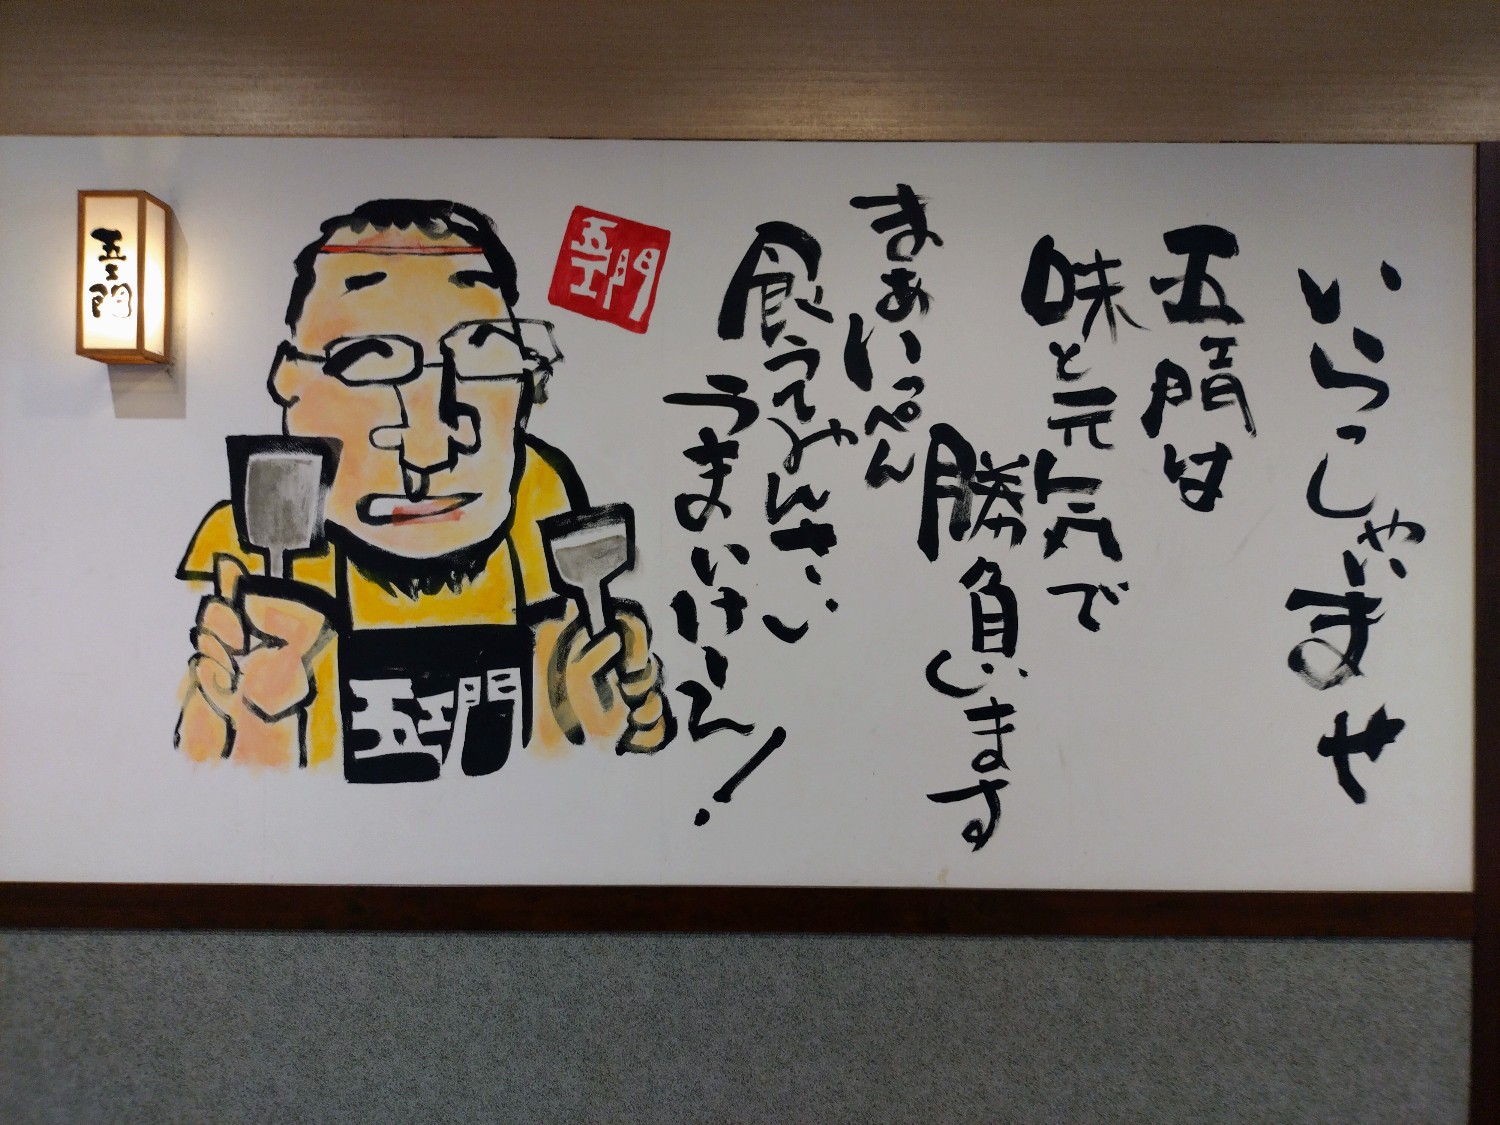 いらっしゃいませ
五エ門は
味と元気で
勝負します
まぁいっぺん
食ってみんさい
うまいけぇのう!
五エ門
五エ門
五エ門